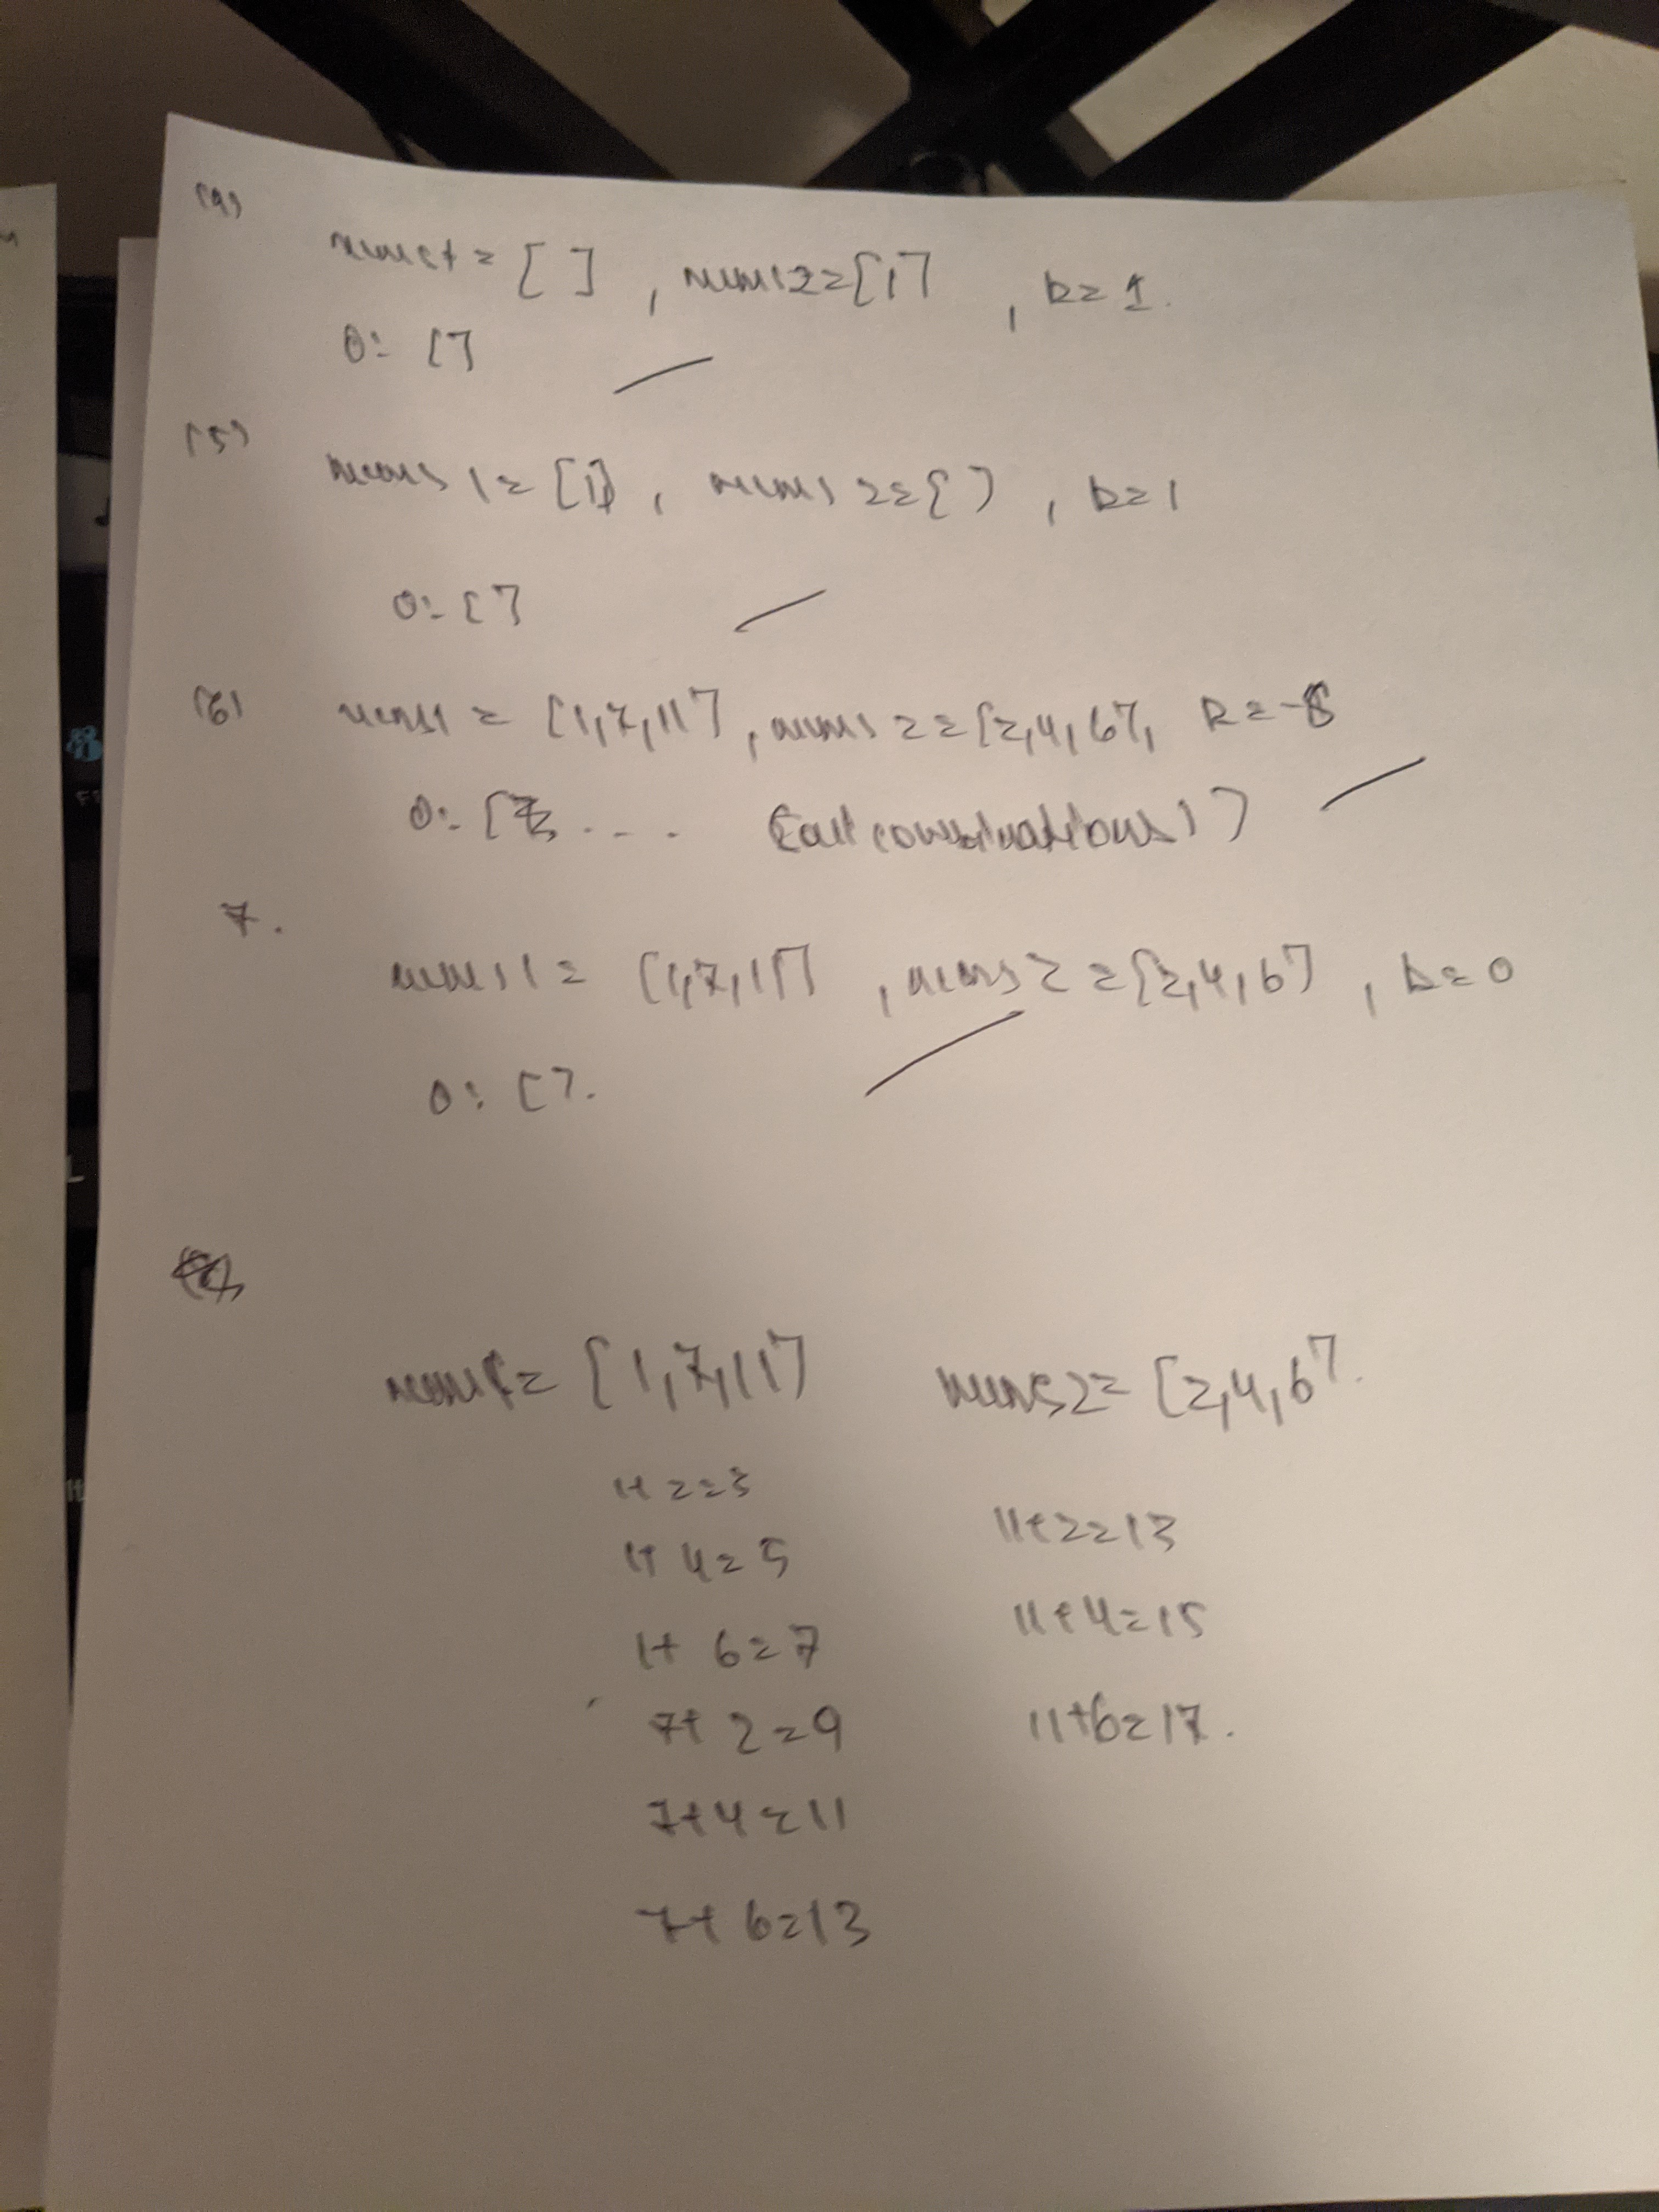 (4)
nums1 = [ ], nums2 = [1], k = 1.
O: []
(5)
nums1 = [1], nums2 = [ ], k = 1
O: []
(6) nums1 = [1,7,11], nums2 = [2,4,6], k = -8
O: [ ... (all combinations)]
7.
nums1 = [1,7,11], nums2 = [2,4,6], k = 0
O: [].
nums1 = [1,7,11] nums2 = [2,4,6].
1+2=3
11+2=13
1+4=5
11+4=15
1+6=7
7+2=9
11+6=17.
7+4=11
7+6=13